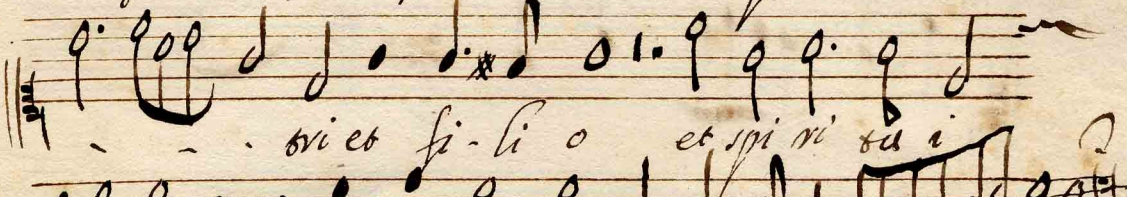 - - - tri et fi - li o et spi ri tu i